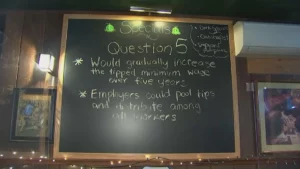 Question 5
* Would gradually increase
the tipped minimum wage
over five years
* Employers could pool tips
and distribute among
all workers